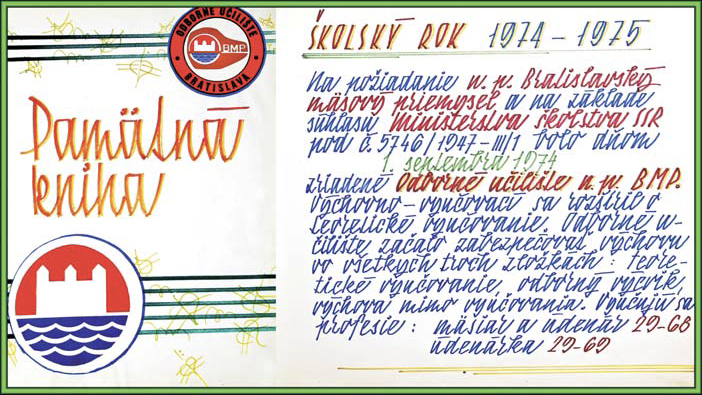 ODBORNÉ UČILIŠTE
BMP
BRATISLAVA
Pamätná
kniha
ŠKOLSKÝ ROK 1974-1975
Na požiadanie n. p. Bratislavský
mäsový priemysel a na základe
súhlasu Ministerstva školstva SSR
pod č. 5746/1947-III/1 bolo dňom
1. septembra 1974
zriadené Odborné učilište n. p. BMP.
Výchovno-vyučovací sa rozšíril o
teoretické vyučovanie. Odborné u-
čilište začalo zabezpečovať výchovu
vo všetkých troch zložkách: teore-
tické vyučovanie, odborný výcvik,
výchova mimo vyučovania. Vyučujú sa
profesie: mäsiar a údenár 29-68
údenárka 29-69